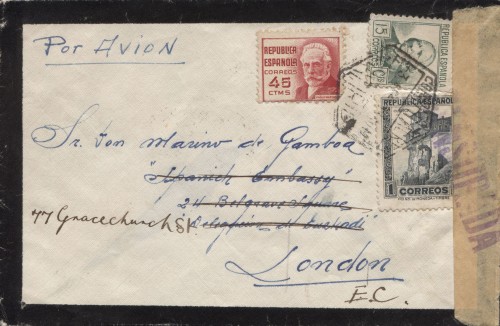 Por Avion
REPUBLICA
ESPAÑOLA
CORREOS
45
CTMS
15
CORREOS
REPUBLICA ESPAÑOLA
REPUBLICA ESPAÑOLA
1
CORREOS
Sr. Don Marino de Gamboa
"Spanish Embassy"
24 Belgrave Square
77 Gracechurch St.
Delegación de Euzkadi
London
E.C.